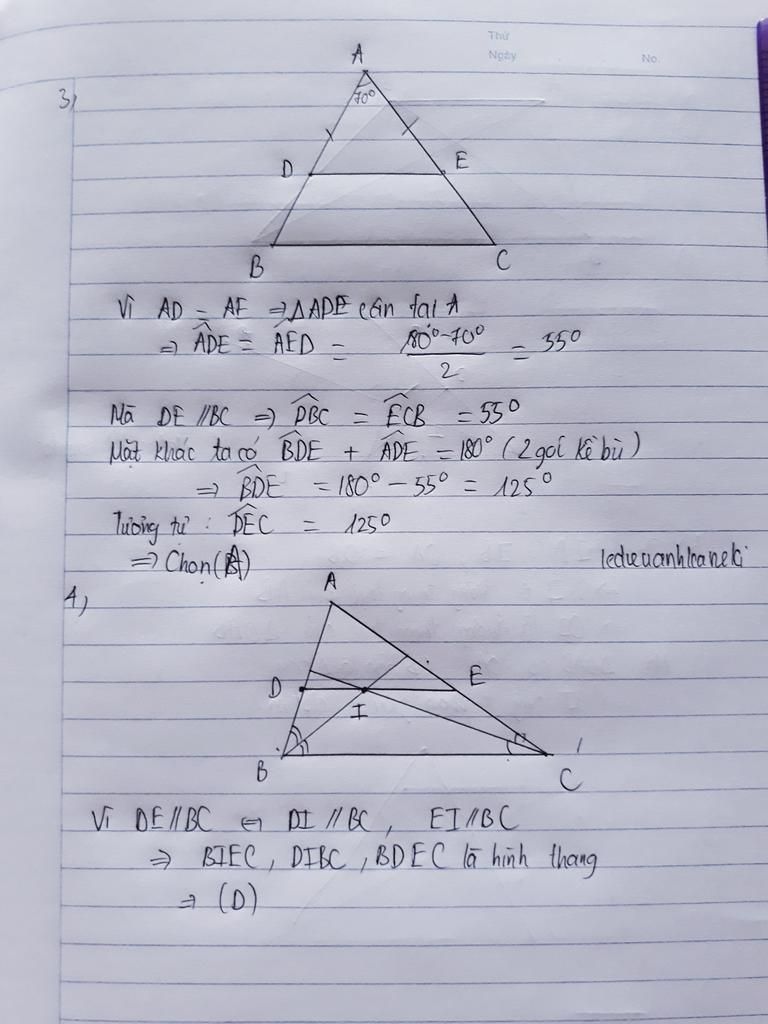 Thứ
Ngày No.
3)
A
70°
D E
B C
Vì AD = AE ⇒ ΔADE cân tại A
⇒ ADE = AED = 180° - 70° / 2 = 55°
Mà DE // BC ⇒ DBC = ECB = 55°
Mặt khác ta có BDE + ADE = 180° (2 goí kề bù)
⇒ BDE = 180° - 55° = 125°
Tương tự : DEC = 125°
⇒ Chọn (A)
4)
A
D E
I
B C
Vì DE // BC ⇔ DI // BC, EI // BC
⇒ BIEC, DIBC, BDEC là hình thang
⇒ (D)